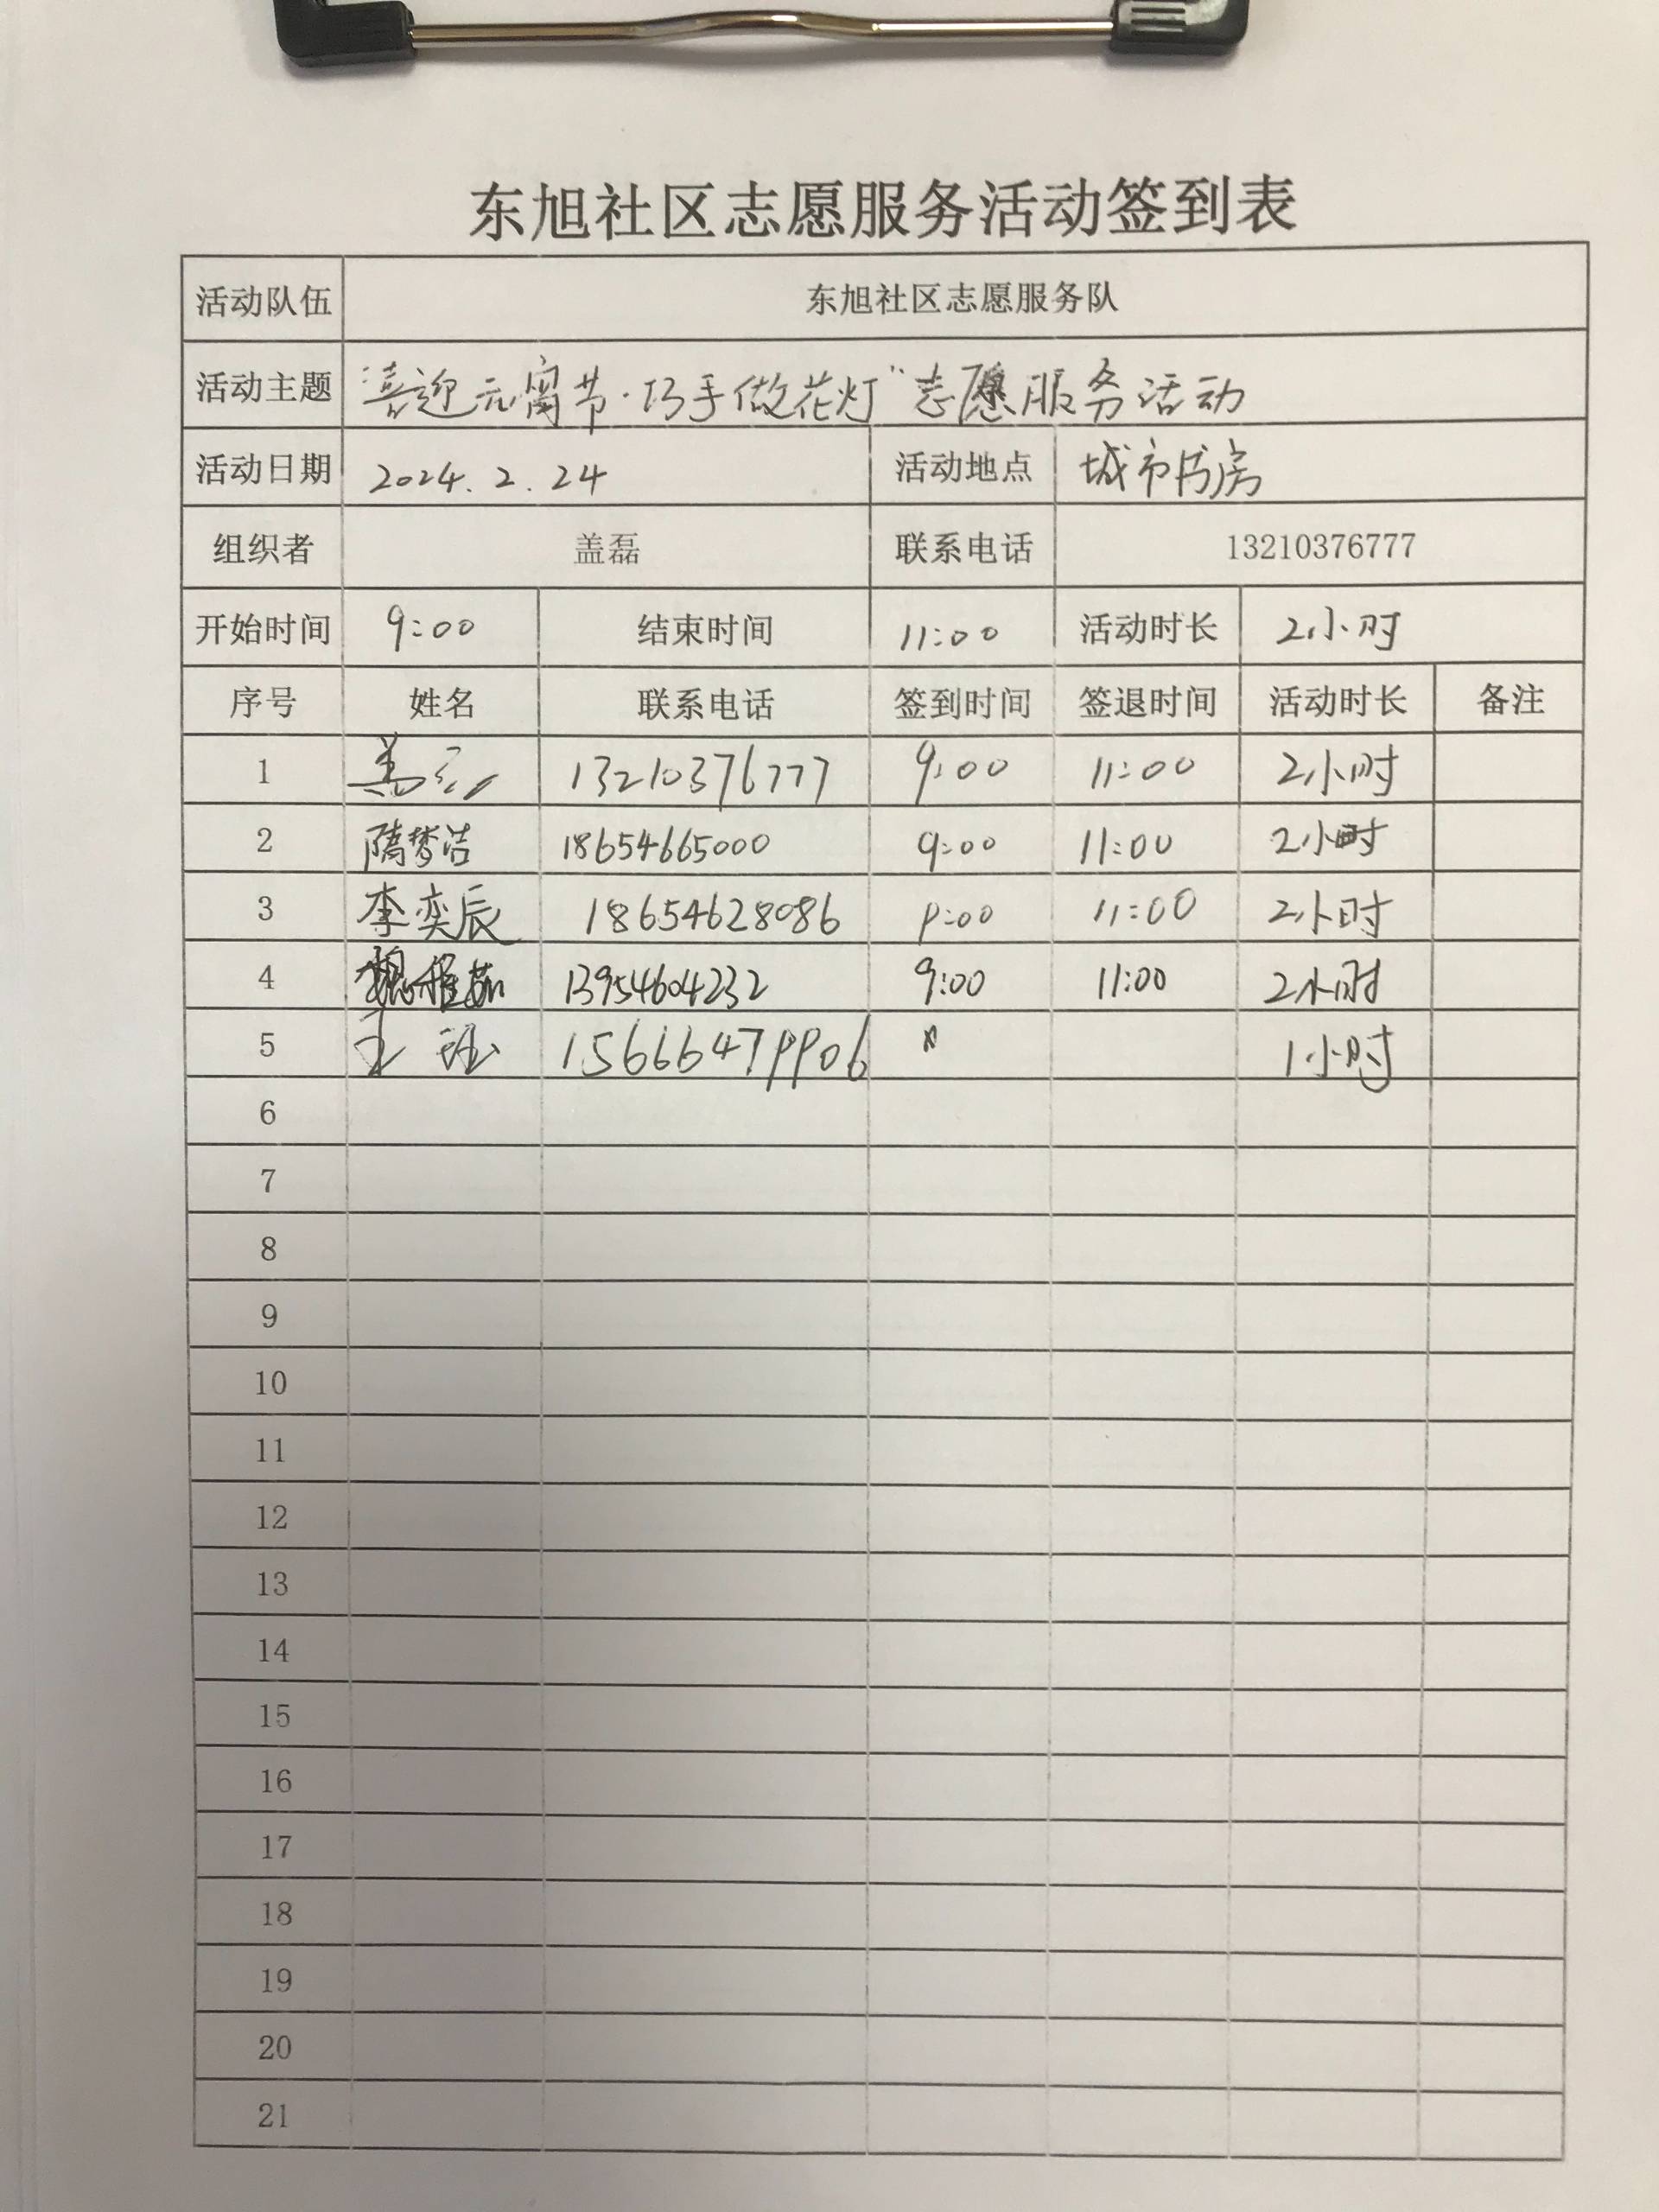 东旭社区志愿服务活动签到表
活动队伍 东旭社区志愿服务队
活动主题 “喜迎元宵节·巧手做花灯”志愿服务活动
活动日期 2024.2.24 活动地点 城市书房
组织者 盖磊 联系电话 13210376777
开始时间 9:00 结束时间 11:00 活动时长 2小时
序号 姓名 联系电话 签到时间 签退时间 活动时长 备注
1 盖磊 13210376777 9:00 11:00 2小时
2 隋梦洁 18654665000 9:00 11:00 2小时
3 李奕辰 18654628086 9:00 11:00 2小时
4 13954604232 9:00 11:00 2小时
5 王 15666479906 1小时
6
7
8
9
10
11
12
13
14
15
16
17
18
19
20
21